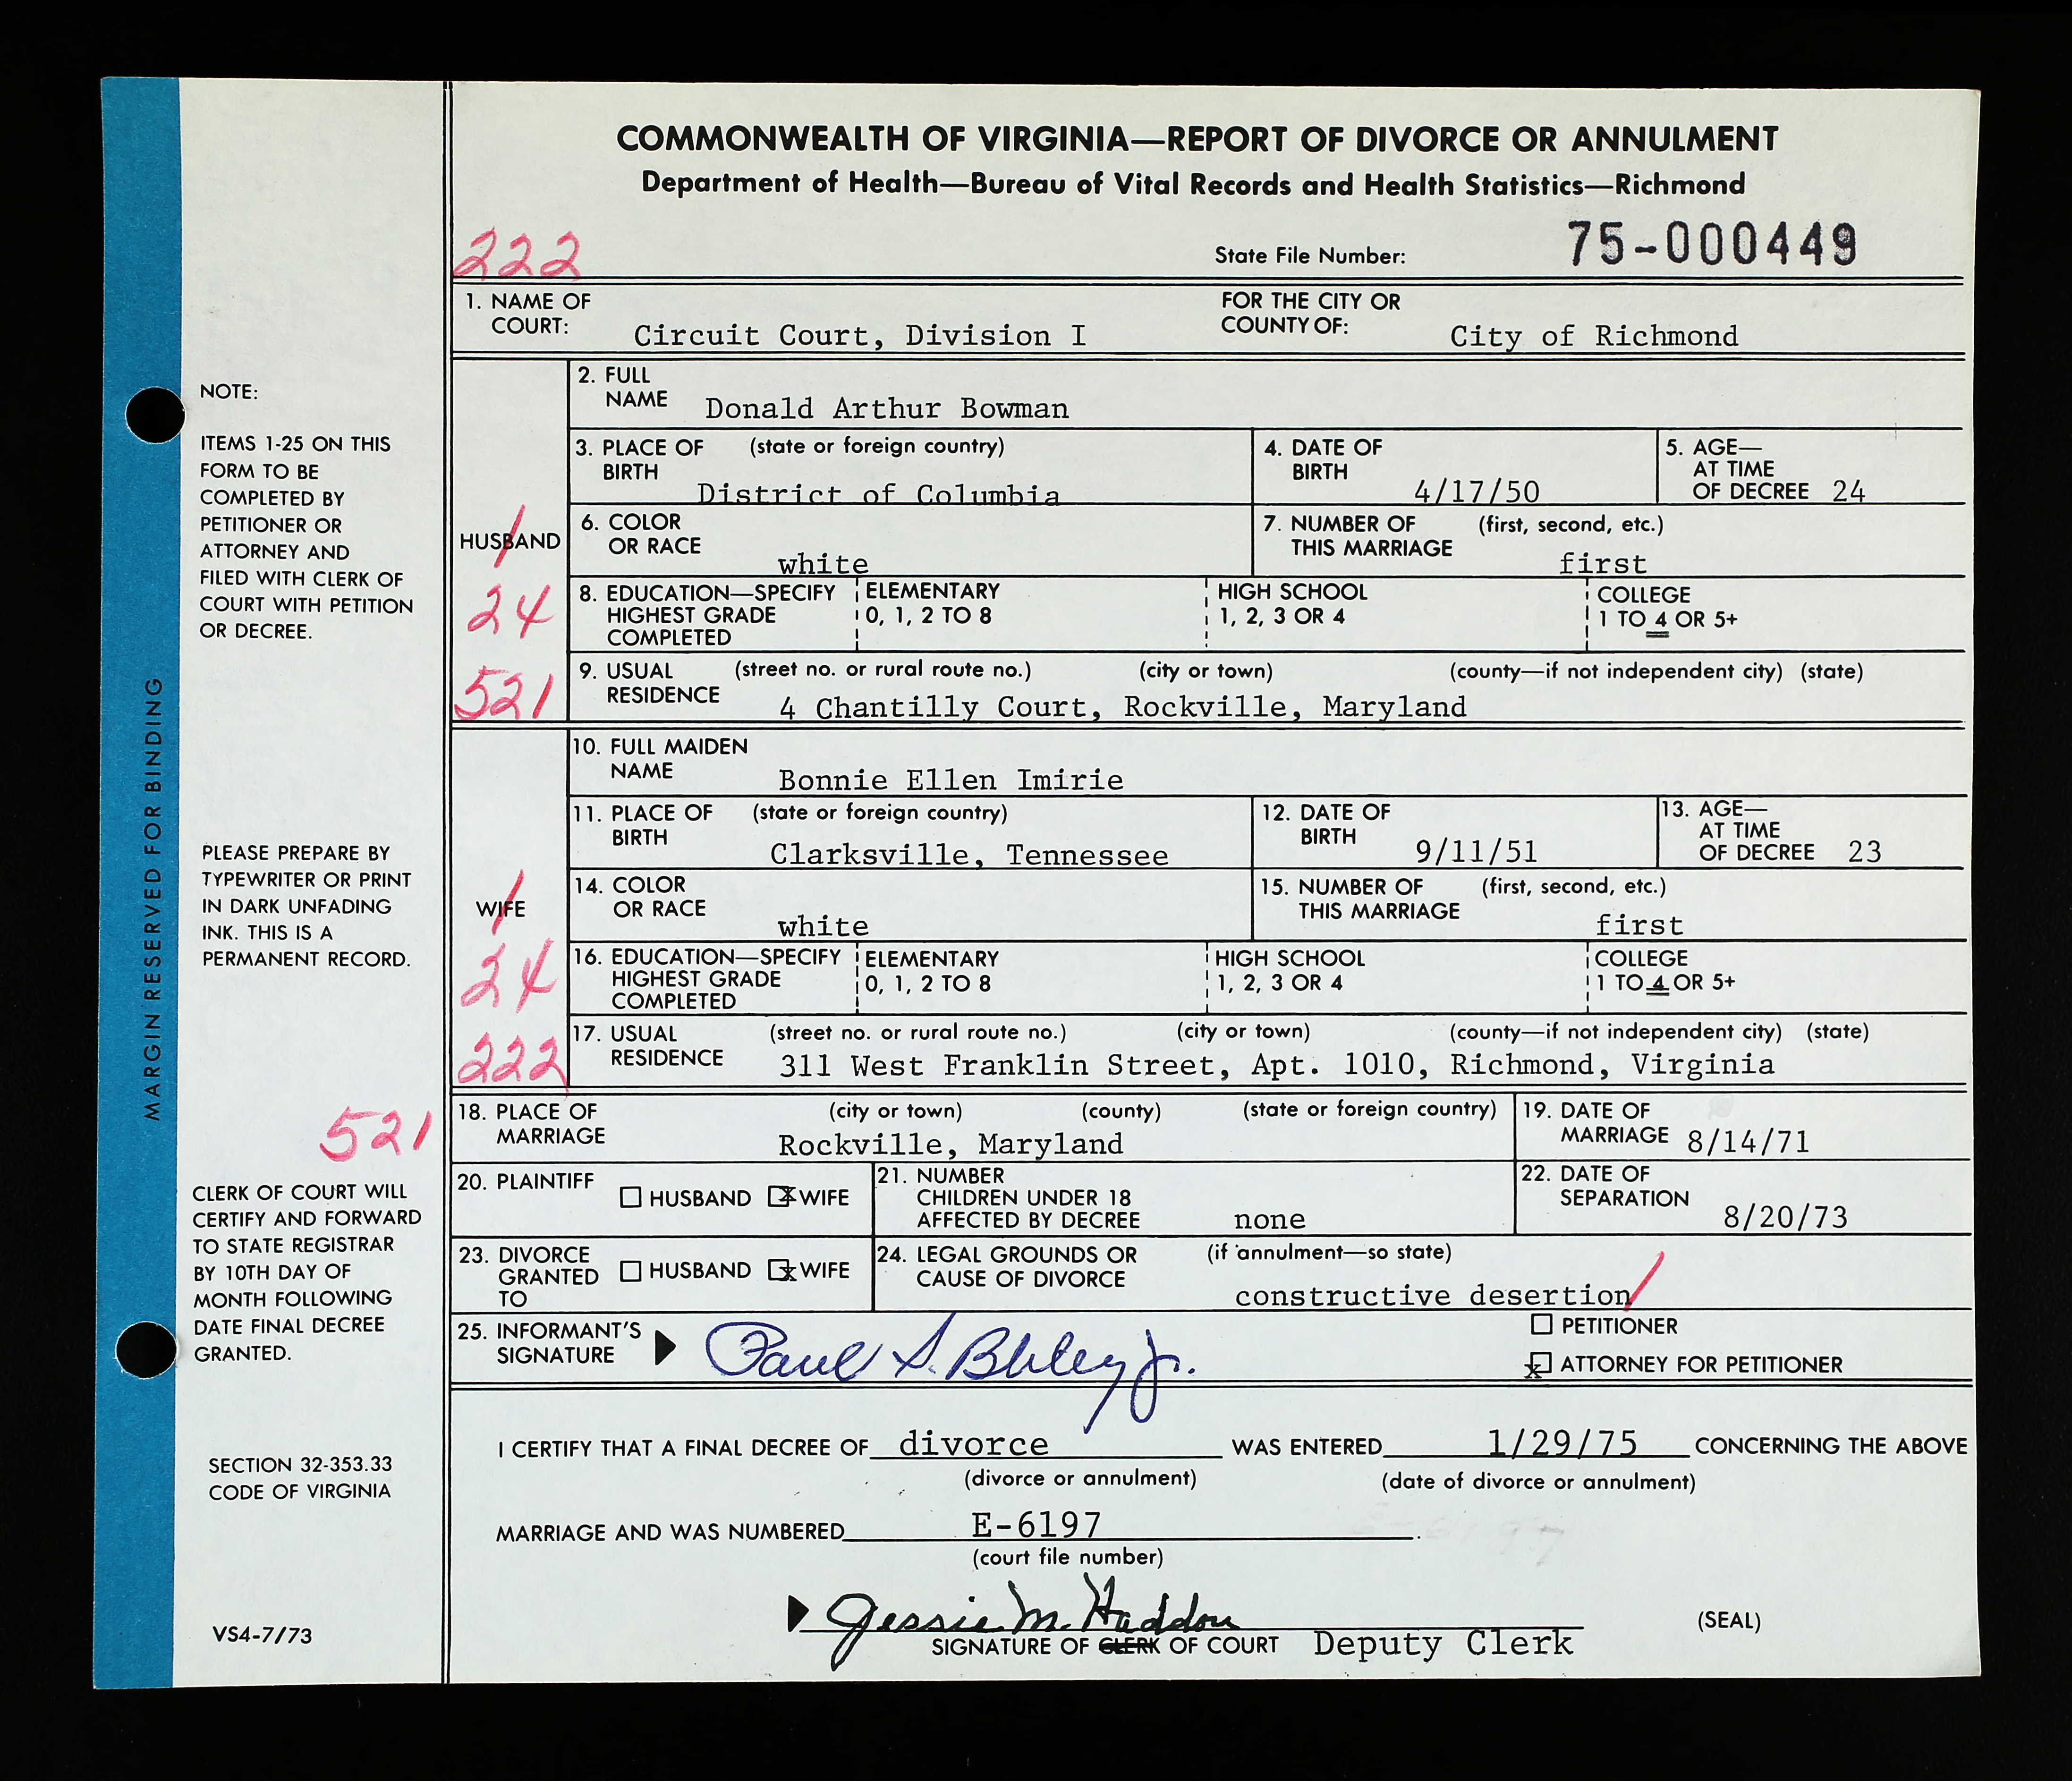 COMMONWEALTH OF VIRGINIA—REPORT OF DIVORCE OR ANNULMENT
Department of Health—Bureau of Vital Records and Health Statistics—Richmond
222
State File Number: 75-000449
1. NAME OF COURT: Circuit Court, Division I FOR THE CITY OR COUNTY OF: City of Richmond
HUSBAND
1
24
521
2. FULL NAME Donald Arthur Bowman
3. PLACE OF BIRTH (state or foreign country) District of Columbia
4. DATE OF BIRTH 4/17/50
5. AGE— AT TIME OF DECREE 24
6. COLOR OR RACE white
7. NUMBER OF THIS MARRIAGE (first, second, etc.) first
8. EDUCATION—SPECIFY HIGHEST GRADE COMPLETED
ELEMENTARY 0, 1, 2 TO 8
HIGH SCHOOL 1, 2, 3 OR 4
COLLEGE 1 TO 4 OR 5+
9. USUAL RESIDENCE (street no. or rural route no.) (city or town) (county—if not independent city) (state)
4 Chantilly Court, Rockville, Maryland
WIFE
1
24
222
10. FULL MAIDEN NAME Bonnie Ellen Imirie
11. PLACE OF BIRTH (state or foreign country) Clarksville, Tennessee
12. DATE OF BIRTH 9/11/51
13. AGE— AT TIME OF DECREE 23
14. COLOR OR RACE white
15. NUMBER OF THIS MARRIAGE (first, second, etc.) first
16. EDUCATION—SPECIFY HIGHEST GRADE COMPLETED
ELEMENTARY 0, 1, 2 TO 8
HIGH SCHOOL 1, 2, 3 OR 4
COLLEGE 1 TO 4 OR 5+
17. USUAL RESIDENCE (street no. or rural route no.) (city or town) (county—if not independent city) (state)
311 West Franklin Street, Apt. 1010, Richmond, Virginia
521
18. PLACE OF MARRIAGE (city or town) (county) (state or foreign country)
Rockville, Maryland
19. DATE OF MARRIAGE 8/14/71
20. PLAINTIFF HUSBAND x WIFE
21. NUMBER CHILDREN UNDER 18 AFFECTED BY DECREE none
22. DATE OF SEPARATION 8/20/73
23. DIVORCE GRANTED TO HUSBAND x WIFE
24. LEGAL GROUNDS OR CAUSE OF DIVORCE (if annulment—so state) constructive desertion
25. INFORMANT'S SIGNATURE Paul S. Jr.
PETITIONER
x ATTORNEY FOR PETITIONER
I CERTIFY THAT A FINAL DECREE OF divorce WAS ENTERED 1/29/75 CONCERNING THE ABOVE
(divorce or annulment) (date of divorce or annulment)
MARRIAGE AND WAS NUMBERED E-6197.
(court file number)
Jessie M. Haddon
SIGNATURE OF CLERK OF COURT Deputy Clerk
(SEAL)
MARGIN RESERVED FOR BINDING
NOTE:
ITEMS 1-25 ON THIS
FORM TO BE
COMPLETED BY
PETITIONER OR
ATTORNEY AND
FILED WITH CLERK OF
COURT WITH PETITION
OR DECREE.
PLEASE PREPARE BY
TYPEWRITER OR PRINT
IN DARK UNFADING
INK. THIS IS A
PERMANENT RECORD.
CLERK OF COURT WILL
CERTIFY AND FORWARD
TO STATE REGISTRAR
BY 10TH DAY OF
MONTH FOLLOWING
DATE FINAL DECREE
GRANTED.
SECTION 32-353.33
CODE OF VIRGINIA
VS4-7/73